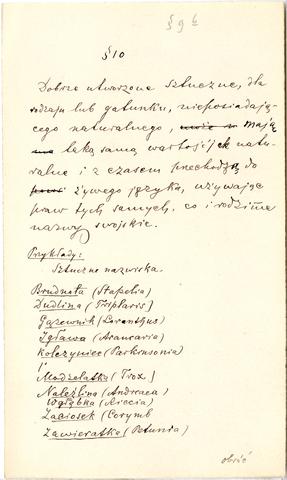 § 9 b
§ 10
Dobrze utworzone sztuczne, dla
rodzaju lub gatunku, nieposiadają-
cego naturalnego, mają
taką samą wartość jak natu-
ralne i z czasem przechodzą do
żywego języka, używając
praw tych samych, co i rodzime
nazwy swojskie.
Przykłady:
Sztuczne nazwiska.
Brudnota (Stapelia)
Dudlina (Triplaris)
Gązewnik (Loranthus)
Igława (Araucaria)
Kolczyniec (Parkinsonia)
Modzelatka (Trox)
Naleźlina (Andreaea)
Wgłębka (Riccia)
Zabiosek (Corymb
Zawieratka (Petunia)